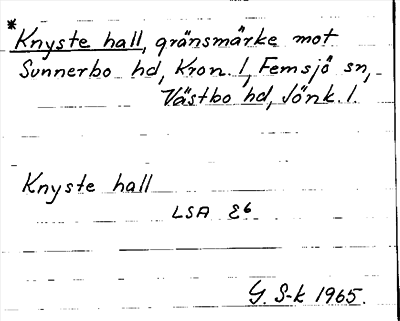 *
Knyste hall, gränsmärke mot
Sunnerbo hd, Kron. l, Femsjö sn,
Västbo hd, Jönk. l.
Knyste hall
LSA E6
G. S-k 1965.